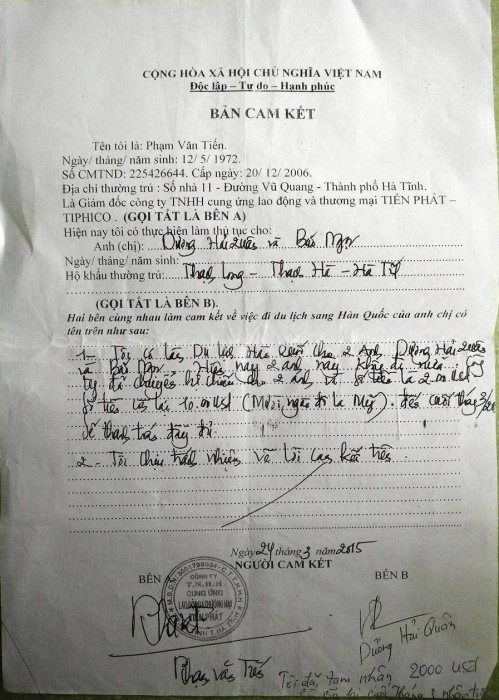 CỘNG HÒA XÃ HỘI CHỦ NGHĨA VIỆT NAM
Độc lập – Tự do – Hạnh phúc
BẢN CAM KẾT
Tên tôi là: Phạm Văn Tiến.
Ngày/ tháng/ năm sinh: 12/ 5/ 1972.
Số CMTND: 225426644. Cấp ngày: 20/ 12/ 2006.
Địa chỉ thường trú : Số nhà 11 - Đường Vũ Quang - Thành phố Hà Tĩnh.
Là Giám đốc công ty TNHH cung ứng lao động và thương mại TIẾN PHÁT –
TIPHICO . (GỌI TẮT LÀ BÊN A)
Hiện nay tôi có thực hiện làm thủ tục cho:
Anh (chị): Dương Hải Quân và Bảo
Ngày/ tháng/ năm sinh:
Hộ khẩu thường trú: Thạch Long – Thạch Hà – Hà Tĩnh
(GỌI TẮT LÀ BÊN B).
Hai bên cùng nhau làm cam kết về việc đi du lịch sang Hàn Quốc của anh chị có
tên trên như sau:
1- Tôi có làm Du lịch Hàn Quốc cho 2 Anh Dương Hải Quân
và Bảo Hiện nay 2 anh này không đi nữa
ty đã chuyển 2 anh số tiền là 2.000 usd
Số tiền còn lại 10.000 usd (Mười ngàn đô la Mỹ). đến cuối tháng 3/
sẽ thanh trả đầy đủ.
2 - Tôi chịu trách nhiệm về lời cam kết trên.
Ngày 24 tháng 3 năm 2015
NGƯỜI CAM KẾT
BÊN A
BÊN B
CÔNG TY
T.N.H.H
CUNG ỨNG
LAO ĐỘNG & THƯƠNG MẠI
TIẾN PHÁT
Phạm Văn Tiến
Dương Hải Quân
Tôi đã tạm nhận 2000 USD